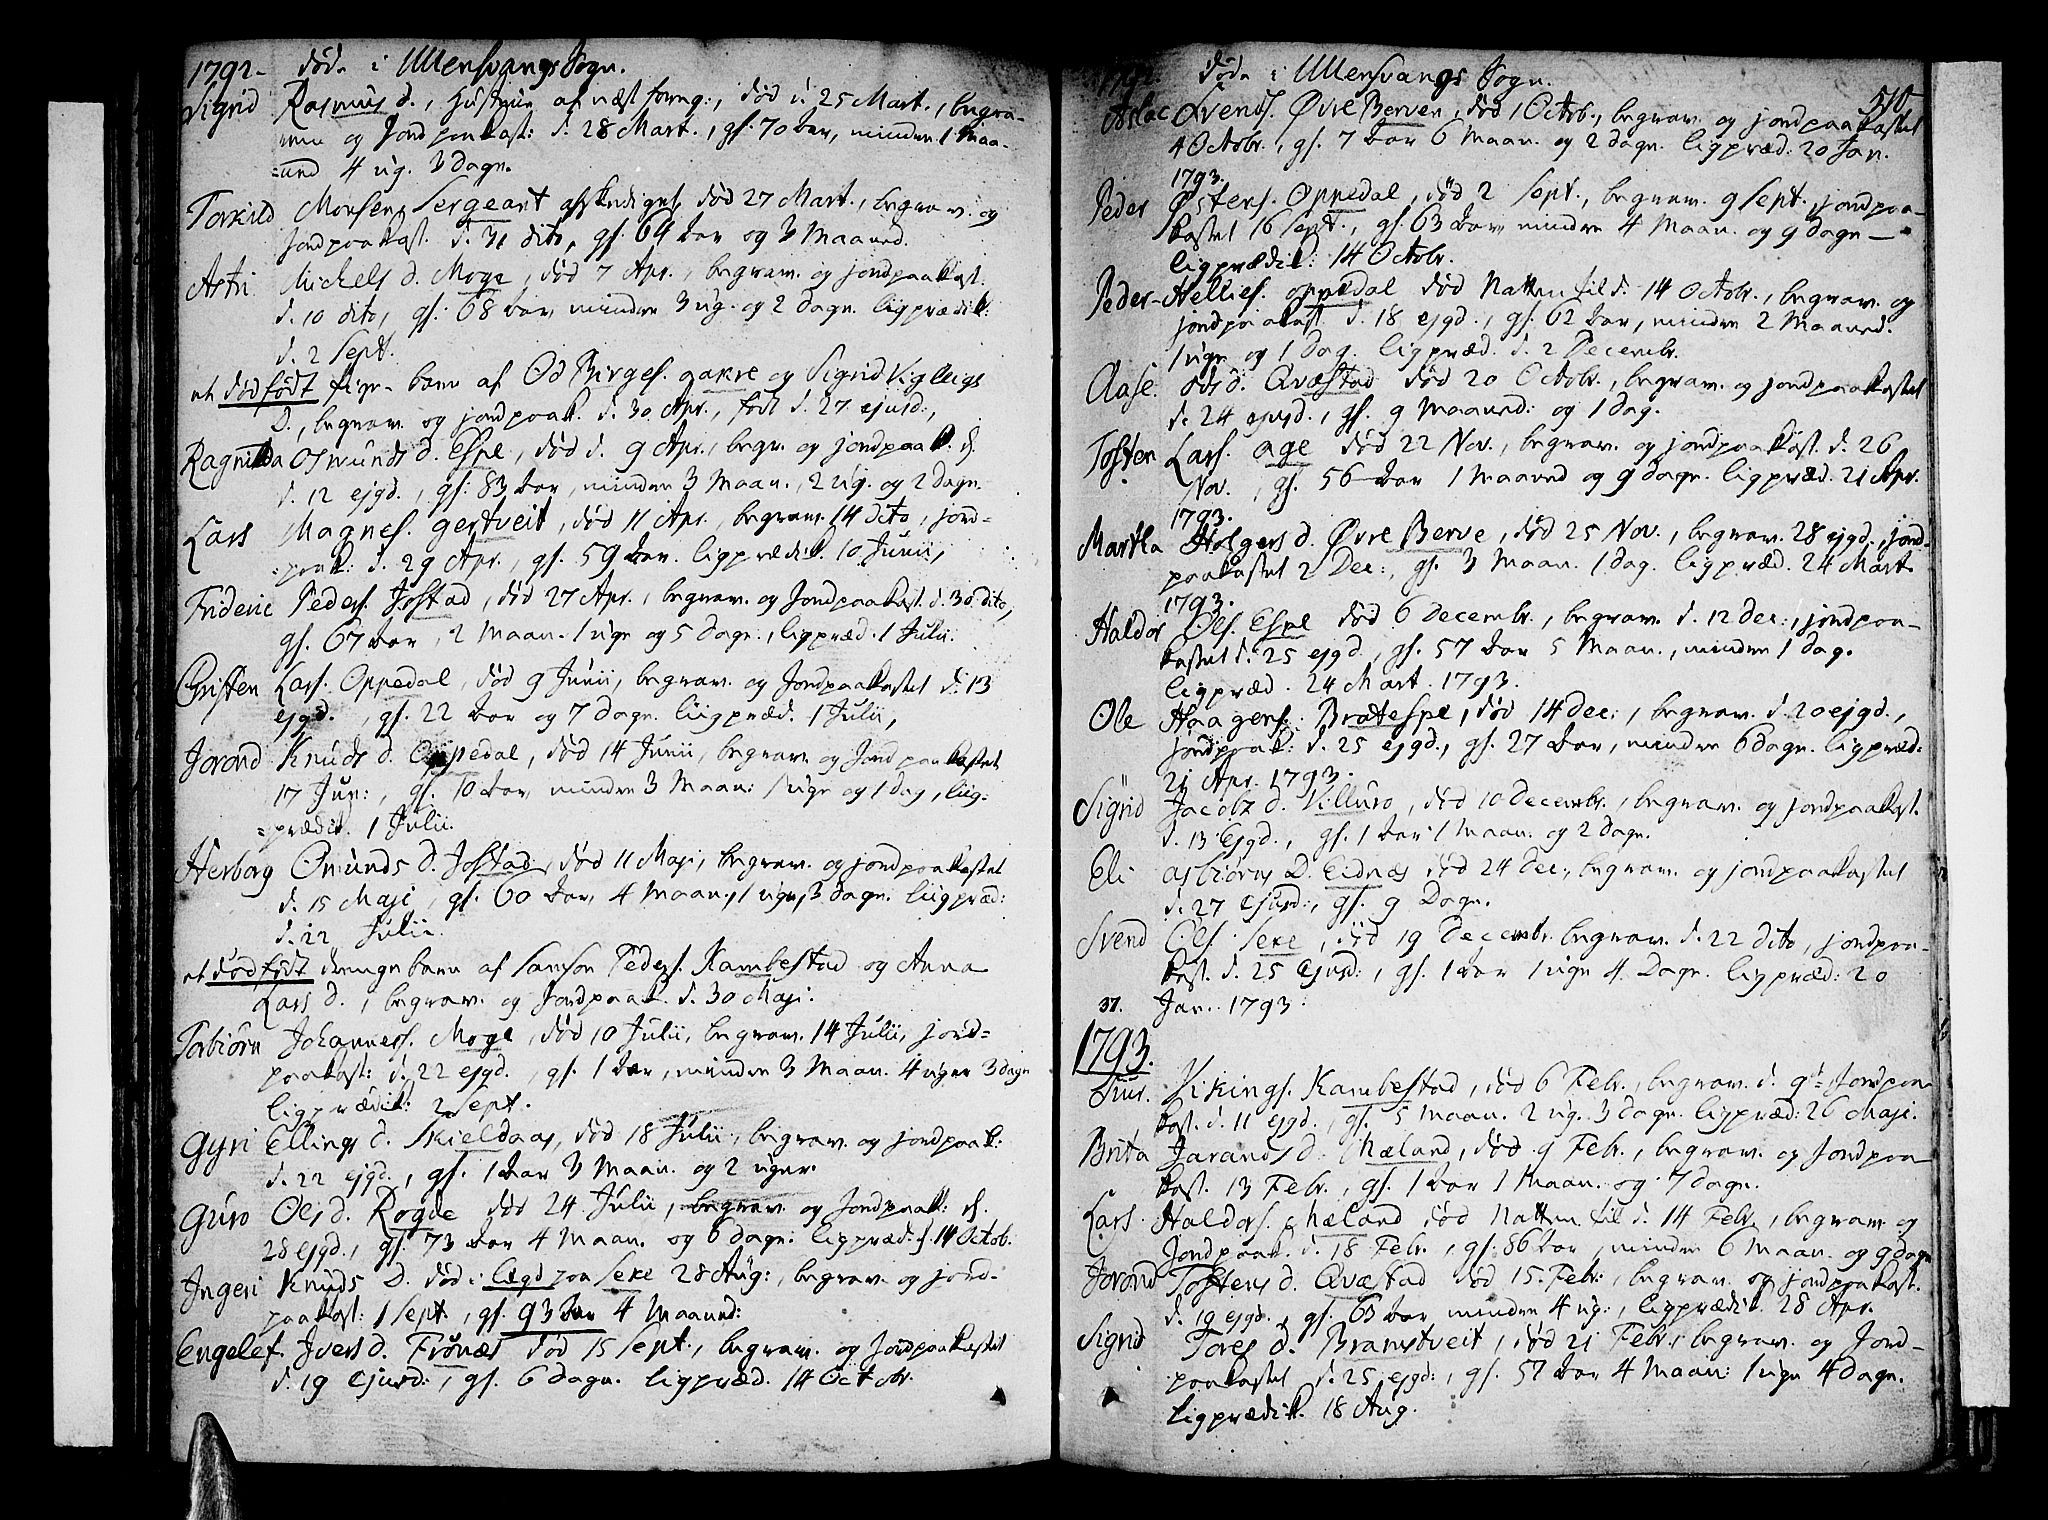 1792. døde i Ullensvangs Sogn.
Sigrid Rasmus d., Hustrue af næst forrng:, død d. 25 Mart., begra-
ven og Jordpaakast: d. 28 Mart., gl. 70 Aar, mindre 1 Maa-
=ned 4 ug. 3 Dage.
Torkild Monsen, Sergeant afskediget, død 27 Mart., begrav. og
Jordpaakast. d. 31 dito, gl. 64 Aar og 3 Maaned.
Astri Michels d. Moge, død 7 Apr., begrav. og jordpaakast.
d. 10 dito, gl. 68 Aar, mindre 3 ug. og 2 Dage. ligprædik:
d. 2 Sept.
et dødfødt pige-barn af Od Birges. aakre og Sigrid Vigleigs
D., begrav. og jordpaak. d. 30 Apr., født d. 27 ejusd:,
Ragnilda Osmunds d. Espe, død d. 9 Apr., begr. og jordpaak.
d. 12 ejgd., gl. 83 Aar, mindre 3 Maan., 2 ug. og 2 Dage.
Lars Magnes. gertveit, død 11 Apr., begrav. 14 dito, jord=
=paak: d. 29 Apr., gl. 59 Aar. ligprædik. 10 Junii,
Frideric Peders. Jostad, død 27 Apr., begrav. og Jordpaakast. d. 30 dito,
gl. 67 Aar, 2 Maan. 1 uge og 5 Dage., ligpræd. 1 Julii.
Christen Lars. Oppedal, død 9 Junii, begrav. og Jordpaakastet d. 13
ejgd., gl. 22 Aar og 7 Dage. liigpræd. 1 Julii,
Jorond Knuds d. Oppedal, død 14 Junii, begrav. og Jordpaakastet
17 Jun:, gl. 10 Aar, mindre 3 Maan: 1 uge og 1 Dag, liig-
=prædik. 1 Julii.
Herborg Omunds d. Jostad, død 11 Maji, begrav. og jordpaakastet
d. 15 Maji, gl. 60 Aar, 4 Maan., 1 uge, 3 dage. liigpræd:
d. 22 Julii.
et dødfødt drengebarn af Samson Peders. Kambestad og Anna
Lars d., begrav. og Jordpaak. d. 30 Maji.
Torbiørn Johanness. Moge, død 10 Julii, begrav. 14 Julii, jord=
paakast: d. 22 ejgd., gl. 1 Aar, mindre 3 Maan. 4 uger 3 dage
ligprædik: 2 Sept.
Gyri Ellings d. Skieldaas, død 18 Julii, begrav og jordpaak:
d. 22 ejgd., gl. 1 Aar 3 Maan. og 2 uger.
Guro Ols d. Rogde død 24 Julii, begrav. og Jordpaak:
28 ejgd., gl. 73 Aar 4 Maan. og 6 dage. ligpræd: 14 Octob.
Ingeri Knuds D. død i Lægd paa Sexe 28 Aug:, begrav. og jord-
paakast: 1 Sept., gl. 93 Aar 4 Maaned:
Engelef Ivers d. Frønæs død 15 Sept., begrav. og Jordpaakastet
d. 19 ejusd:, gl. 6 Dage. ligpræd. 14 Octobr.
1792. døde i Ullensvangs Sogn. 510
Aslac Svends. Øvre Berven, død 1 Octob., begrav. og jordpaakastet
4 Octobr., gl. 7 Aar 6 Maan. og 2 dage. ligpræd: 20 Jan.
1793.
Peder Ostens. Oppedal, død 2 Sept., begrav. 9 Sept., jordpaa-
kastet 16 Sept., gl. 63 Aar mindre 4 Maan. og 9 dage —
ligprædik: 14 Octobr.
Peder Hellies. oppedal død Natten til d. 14 Octobr., begrav. og
jordpaakast. d. 18 ejgd., gl. 62 Aar, mindre 2 Maaned.
1 uge og 1 Dag. ligpræd. d. 2 Decembr.
Aase. Ods d. Qvæstad død 20 Octobr., begrav. og jordpaakastet
d. 24 ejusd., gl. 9 Maaned: og 1 dag.
Tosten Lars. age død 22 Nov., begrav. og jordpaakast. d. 26
Nov., gl. 56 Aar 1 Maaned og 9 dage. ligpræd. 21 Apr.
1793.
Martha Holgers d. Øvre Berve, død 25 Nov., begrav. 28 ejgd., jord-
paakastet 2 Dec:, gl. 3 Maan. 1 dag. ligpræd. 24 Mart.
1793.
Haldor Ols. Espe død 6 Decembr., begrav. d. 12 Dec:, jordpaa-
kastet d. 25 ejgd., gl. 57 Aar 5 Maan., mindre 1 dag.
ligpræd. 24 Mart. 1793.
Ole Haagens. Bratespe, død 14 Dec:, begrav. d. 20 ejgd.,
jordpaak: d. 25 ejgd., gl. 27 Aar, mindre 6 dage. ligpræd:
21 Apr. 1793.
Sigrid Jacobs d. Villuro, død 10 Decembr., begrav. og jordpaakast.
d. 13 Ejgd., gl. 1 Aar 1 Maan. og 2 dage.
Eli asbiørns D. Eidnæs død 24 Dec:, begrav. og jordpaakastet
d. 27 Ejusd:, gl. 9 Dage.
Svend Ols. Sexe, død 19 Decembr. begrav. d. 22 dito, jordpaa-
kast. d. 25 Ejusd:, gl. 1 Aar 1 uge 4 Dage. ligpræd: 20
37. Jan. 1793.
1793.
Siur. Vikings. Kambestad, død 6 Febr., begrav. d. 9de Jordpaa-
kast. d. 11 ejgd., gl. 5 Maan. 2 ug. 3 dage. ligpræd: 26 Maji.
Brita Jarands d. Mæland, død 9 Febr., begrav. og Jordpaa-
kast. 13 Febr., gl. 1 Aar 1 Maan. og 7 dage.
Lars Haldors. Mæland død Natten til d. 14 Febr., begrav. og
Jordpaak. d. 18 Febr., gl. 86 Aar, mindre 6 Maan. og 9 dage
Jorond Tostens d. Qvæstad død 15. Febr:, begrav. og jordpaakast.
d. 19 ejgd., gl. 63 Aar mindre 4 ug:, ligprædik. 28 Apr.
Sigrid Tores d. Bramstveit, død 21 Febr: begrav. og Jord-
paakastet d. 25 ejgd:, gl. 57 Aar 4 Maan: 1 uge 4 Dage.
Ligprædik. 18 Aug.